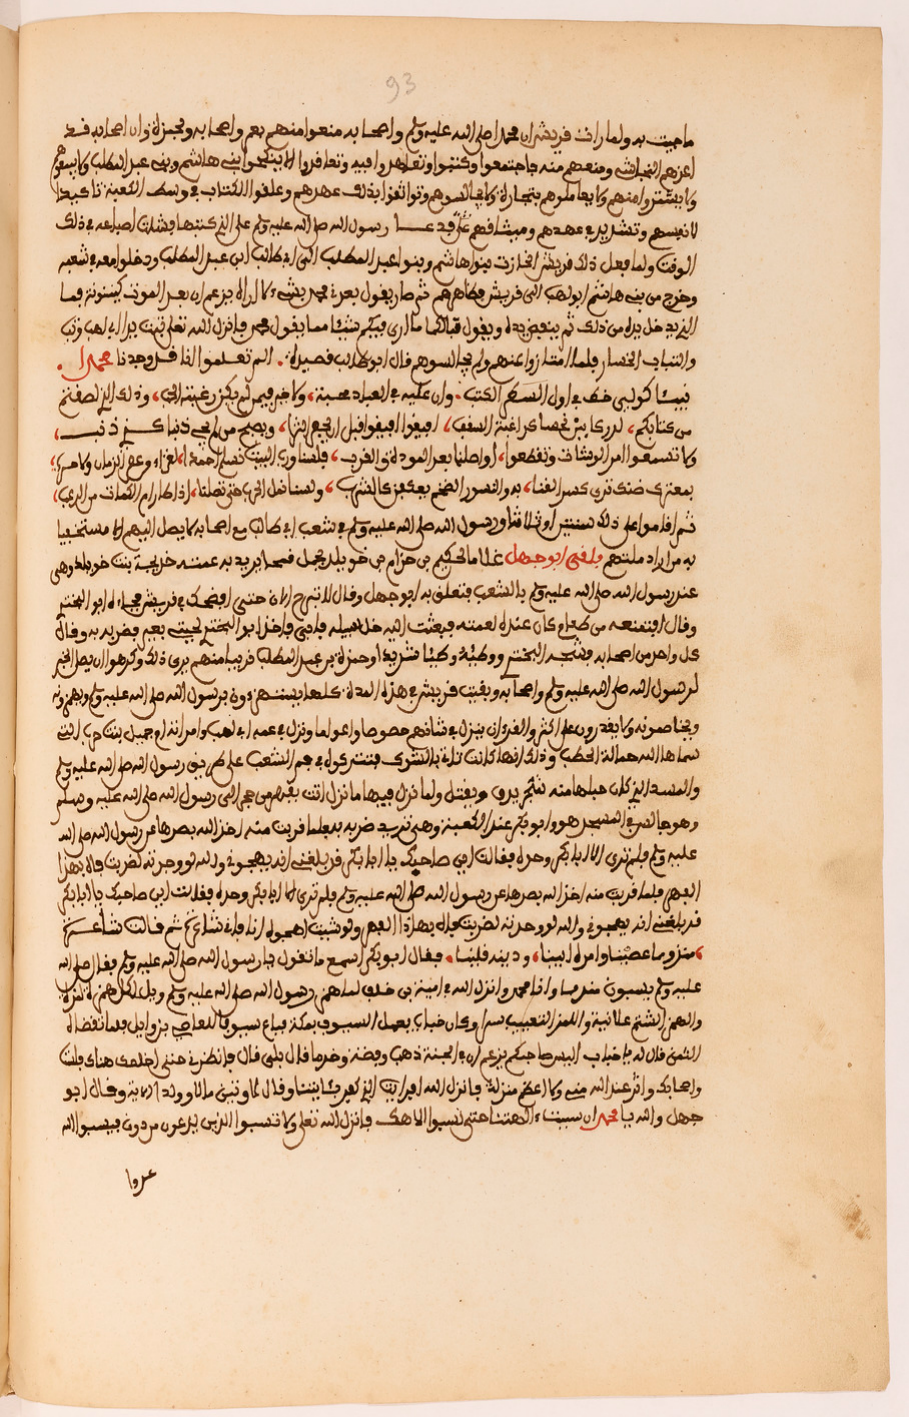 93
ما جيت به ولما رات فريش ان محمدا صلى الله عليه وسلم واصحابه منعوا منهم بعم واصحابه وبحمزة وان اصحابه قد
اعزهم النجاشي ومنعهم منه فاجتمعوا وكتبوا وتعاهدوا فيه وتعاقدوا الا ينكحوا بني هاشم وبني عبد المطلب ولا يبيعوهم
ولا يشتروا منهم ولا يعاملوهم بتجارة ولا يجالسوهم وتواثقوا بذلك عهدهم وعلقوا الكتاب في وسط الكعبة تاكيدا
لانفسهم وتشديد في عهدهم وميثاقهم قدعا رسول الله صلى الله عليه وسلم على الذي كتبها فشلت اصابعه في ذلك
الوقت ولما فعل ذلك فريش انحازت بنوا هاشم وبنوا عبد المطلب الى ابي طالب ابن عبد المطلب ودخلوا معه في شعبه
وخرج من بني هاشم ابو لهب الى فريش فظاهرهم ثم صار يقول يعدني محمد بشيء لا اراه يزعم ان بعد الموت كينونة فما
الذي يدخل يدي من ذلك ثم ينفض يده ويقول تبا لكما ما ارى فيكم شيئا مما يقول محمد فانزل الله تعلى تبت يدا ابي لهب وتب
والتباب الخسار فلما امتازوا عنهم ولم يجالسوهم قال ابو طالب قصيدة الم تعلموا انا قد وجدنا محمدا
نبيئا كموسى خط في اول الكتب وان عليه في العباد محبة ولا خير فيمن لم يكن رغبة الحب وذلك الذي لصقتم
من كتابكم لدى كائن نحسا كراغية السقب افيقوا افيقوا قبل ان يحفر الثرى ويصبح من لم يجن ذنبا كذي ذنب
ولا تسمعوا امر الوشاة وتقطعوا اواصلنا بعد المودة والقرب فلسنا ورب البيت نسلم احمدا لعزاء وعض الزمان ولا حرب
بمعترك ضنك ترى كسر القنا به والنسور الضخم يعكفن كالشرب ولسنا نمل الحرب حتى تملنا اذا طار ارام الكمات من الرعب
ثم اقاموا على ذلك سنتين او ثلاثا ورسول الله صلى الله عليه وسلم في شعب ابي طالب مع اصحابه لا يصل اليهم الا مستخفيا
به من اراد صلتهم فلقي ابو جهل غلاما لحكيم بن حزام بن خويلد يحمل قمحا يريد به عمته خديجة بنت خويلد وهي
عند رسول الله صلى الله عليه وسلم بالشعب فتعلق به ابو جهل وقال لا تبرح الان حتى افضحك في فريش فجاءه ابو البختري
وقال افتمنعه من طعام كان عنده لعمته فبعثت اليه خل سبيله فابى فاخذ ابو البختري لحيي بعير فضربه به وقال
كل واحد من اصحابه فشجه البختري ووطئه وطيئا شديدا وحمزة بن عبد المطلب قريبا منهم يرى ذلك وكرهوا ان يصل الخبر
لرسول الله صلى الله عليه وسلم واصحابه وبقيت فريش في هذه المدة كلها يستهزءون برسول الله صلى الله عليه وسلم ويهمزونه
ويخاصمونه ولا يقدرون على اكثر والقرءان ينزل في شانهم خصوصا وعموما ونزل في عمه ابي لهب وامراته ام جميل بنت حرب التي
سماها الله حمالة الحطب وذلك انها كانت تاتي بالشوك فتنثر كوله في فم الشعب على طريق رسول الله صلى الله عليه وسلم
والمسد الذي كان حبلها منه شجر يدق ويفتل ولما نزل فيها ما نزل اتت بفهر من حجر الى رسول الله صلى الله عليه وسلم
وهو جالس في المسجد هو وابو بكر عند الكعبة وهي تريد ضربه به فلما قربت منه اخذ الله بصرها عن رسول الله صلى الله
عليه وسلم فلم ترى الا ابا بكر وحده فقالت اين صاحبك يا ابا بكر قد بلغني انه يهجوني والله لو وجدته لضربت فاه بهذا
الفهر فلما قربت منه اخذ الله بصرها عن رسول الله صلى الله عليه وسلم فلم ترى الا ابا بكر وحده فقالت اين صاحبك يا ابا بكر
قد بلغني انه يهجوني والله لو وجدته لضربت فاه بهاذا الفهر ولو شيت اهجوه انا فاني شاعرة ثم قالت شاعرة
مذمما عصينا وامره ابينا ودينه قلينا فقال ابو بكر اسمع ما تقول يا رسول الله صلى الله عليه وسلم فقال صلى الله
عليه وسلم يسبون مذمما وانا محمد وانزل الله في امية بن خلف لما همز رسول الله صلى الله عليه وسلم ويل لكل همزة لمزة
والهمز الشتم علانية واللمز التعييب سرا وكان خباب يعمل السيوف بمكة فباع سيوفا للعاصي بن وايل فلما تقضاه
الثمن قال له يا خباب اليس صاحبكم يزعم ان في الجنة ذهب وفضة وخدما قال بلى قال فانظرني حتى اخلصك هناك فلست
واصحابك واثر عند الله مني ولا اعظم منزلة فانزل الله افرايت الذي كفر بئاياتنا وقال لاوتين مالا وولدا الاية وقال ابو
جهل والله يا محمد ان سببت ءالهتنا حتى نسبوا الاهك فانزل الله تعلى ولا تسبوا الذين يدعون من دون فيسبوا الله
عدوا